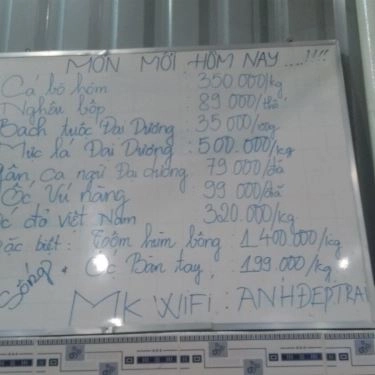 MÓN MỚI HÔM NAY ....!!!!
Cá bò hòm : 350.000/kg
Nghêu bôp : 89 000/
Bạch tuộc Đại Dương : 35 000/con
Mực lá Đại Dương : 500.000/kg
cá ngừ Đại dương : 79 000/đĩa
Ốc Vú nàng : 99 000/đĩa
ốc đỏ Việt Nam : 320.000/kg
Đặc biệt : Tôm hùm bông : 1 400.000/kg
Sống * Ốc Bàn tay : 199.000/kg
MK WIFI : ANHĐEPTRAI